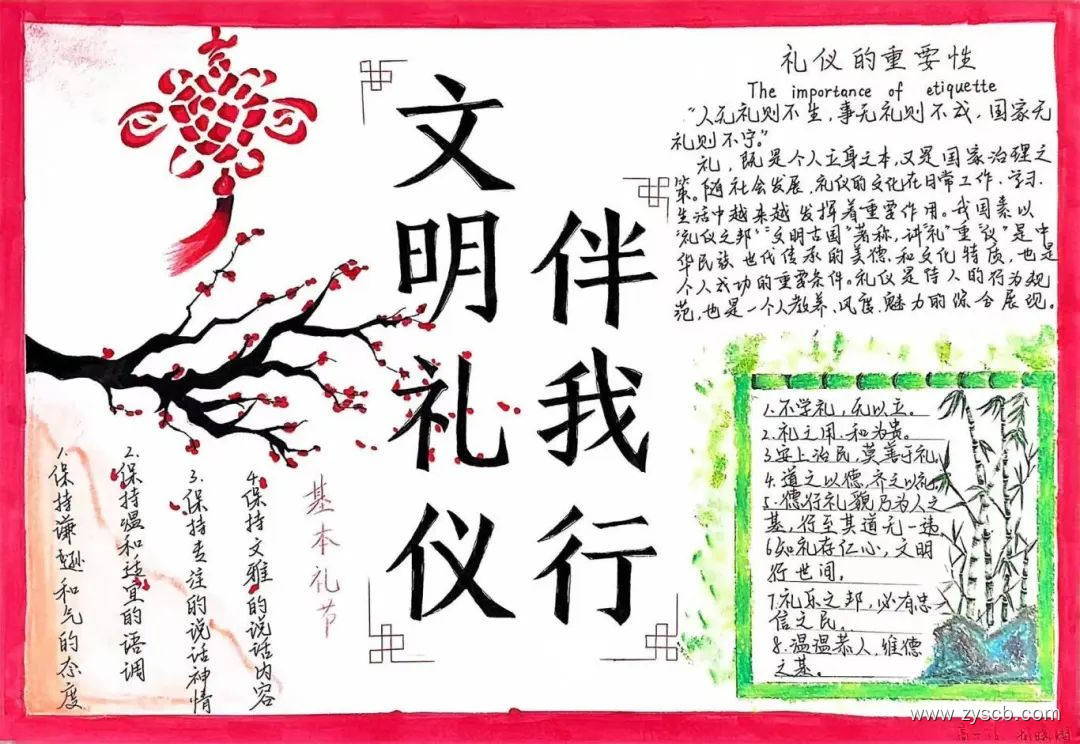 文明礼仪
伴我行
礼仪的重要性
The importance of etiquette
“人无礼则不生，事无礼则不成，国家无
礼则不宁。”
礼，既是个人立身之本，又是国家治理之
策。随社会发展，礼仪的文化在日常工作、学习、
生活中越来越发挥着重要作用。我国素以
“礼仪之邦”“文明古国”著称，讲“礼”重“仪”是中
华民族世代传承的美德和文化特质，也是
个人成功的重要条件。礼仪是待人的行为规
范，也是一个人教养、风度、魅力的综合展现。
基本礼节
1.保持谦逊和气的态度
2.保持温和适宜的语调
3.保持专注的说话神情
4.保持文雅的说话内容
1.不学礼，无以立。
2.礼之用，和为贵。
3.安上治民，莫善于礼
4.道之以德，齐之以礼
5.德行礼貌乃为人之
基，行至其道无一违
6知礼存仁心，文明
行世间，
7.礼乐之邦，必有忠
信之民。
8.温温恭人，维德
之基。
www.zyscb.com